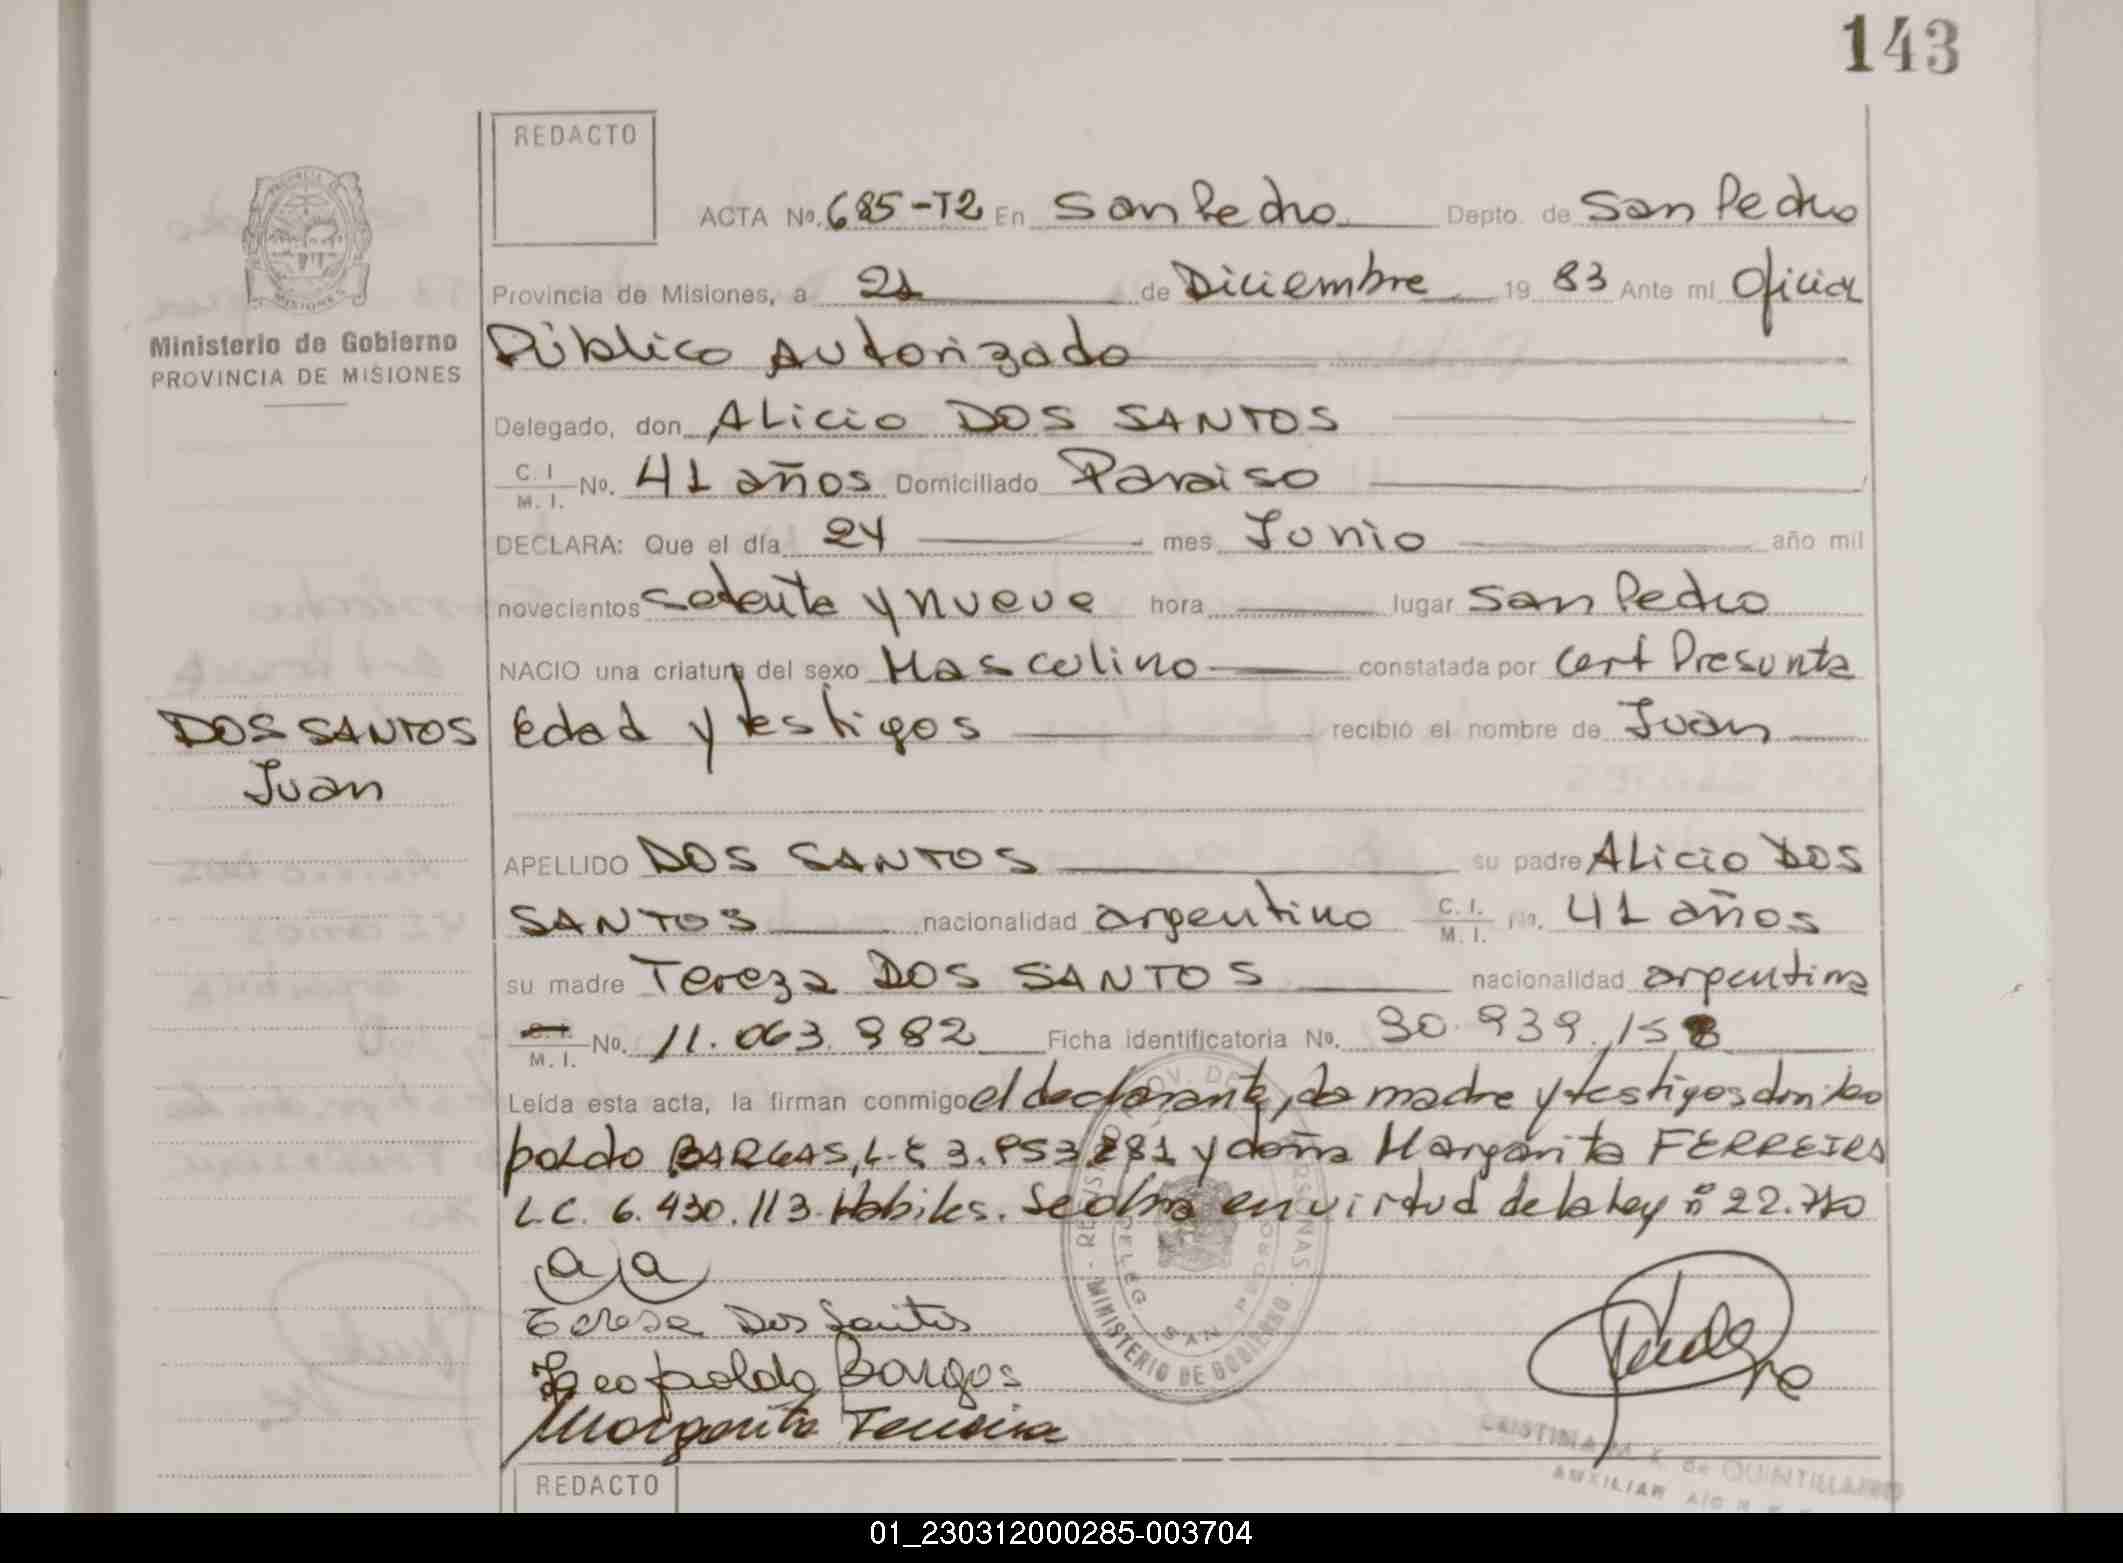 143
REDACTO
ACTA No. 685-T2 En San Pedro Depto. de San Pedro
Provincia de Misiones, a 21 de Diciembre 19 83 Ante mí Oficial
Ministerio de Gobierno
PROVINCIA DE MISIONES
Público Autorizado
Delegado, don Alicio DOS SANTOS
C. I. / M. I. No. 41 años Domiciliado Paraiso
DECLARA: Que el día 24 mes Junio año mil
novecientos setenta y nueve hora lugar San Pedro
NACIO una criatura del sexo Masculino constatada por Cert Presunta
DOS SANTOS
Juan
Edad y testigos recibió el nombre de Juan
APELLIDO DOS SANTOS su padre Alicio DOS
SANTOS nacionalidad argentino C. I. / M. I. No. 41 años
su madre Tereza DOS SANTOS nacionalidad argentina
C. I. / M. I. No. 11.063.982 Ficha identificatoria No. 30.939.158
Leída esta acta, la firman conmigo el declarante, la madre y testigos don Leo
poldo BARGAS, L.E 3. y doña Margarita FERREIRA
L.C. 6.430.113 Habiles. Se obra en virtud de la ley nº 22.
Teresa Dos Santos
Leopoldo Bargas
Margarita Ferreira
MINISTERIO DE GOBIERNO
DELEG. SAN PEDRO
CRISTINA M. K. de QUINTILLANO
AUXILIAR
REDACTO
01_230312000285-003704